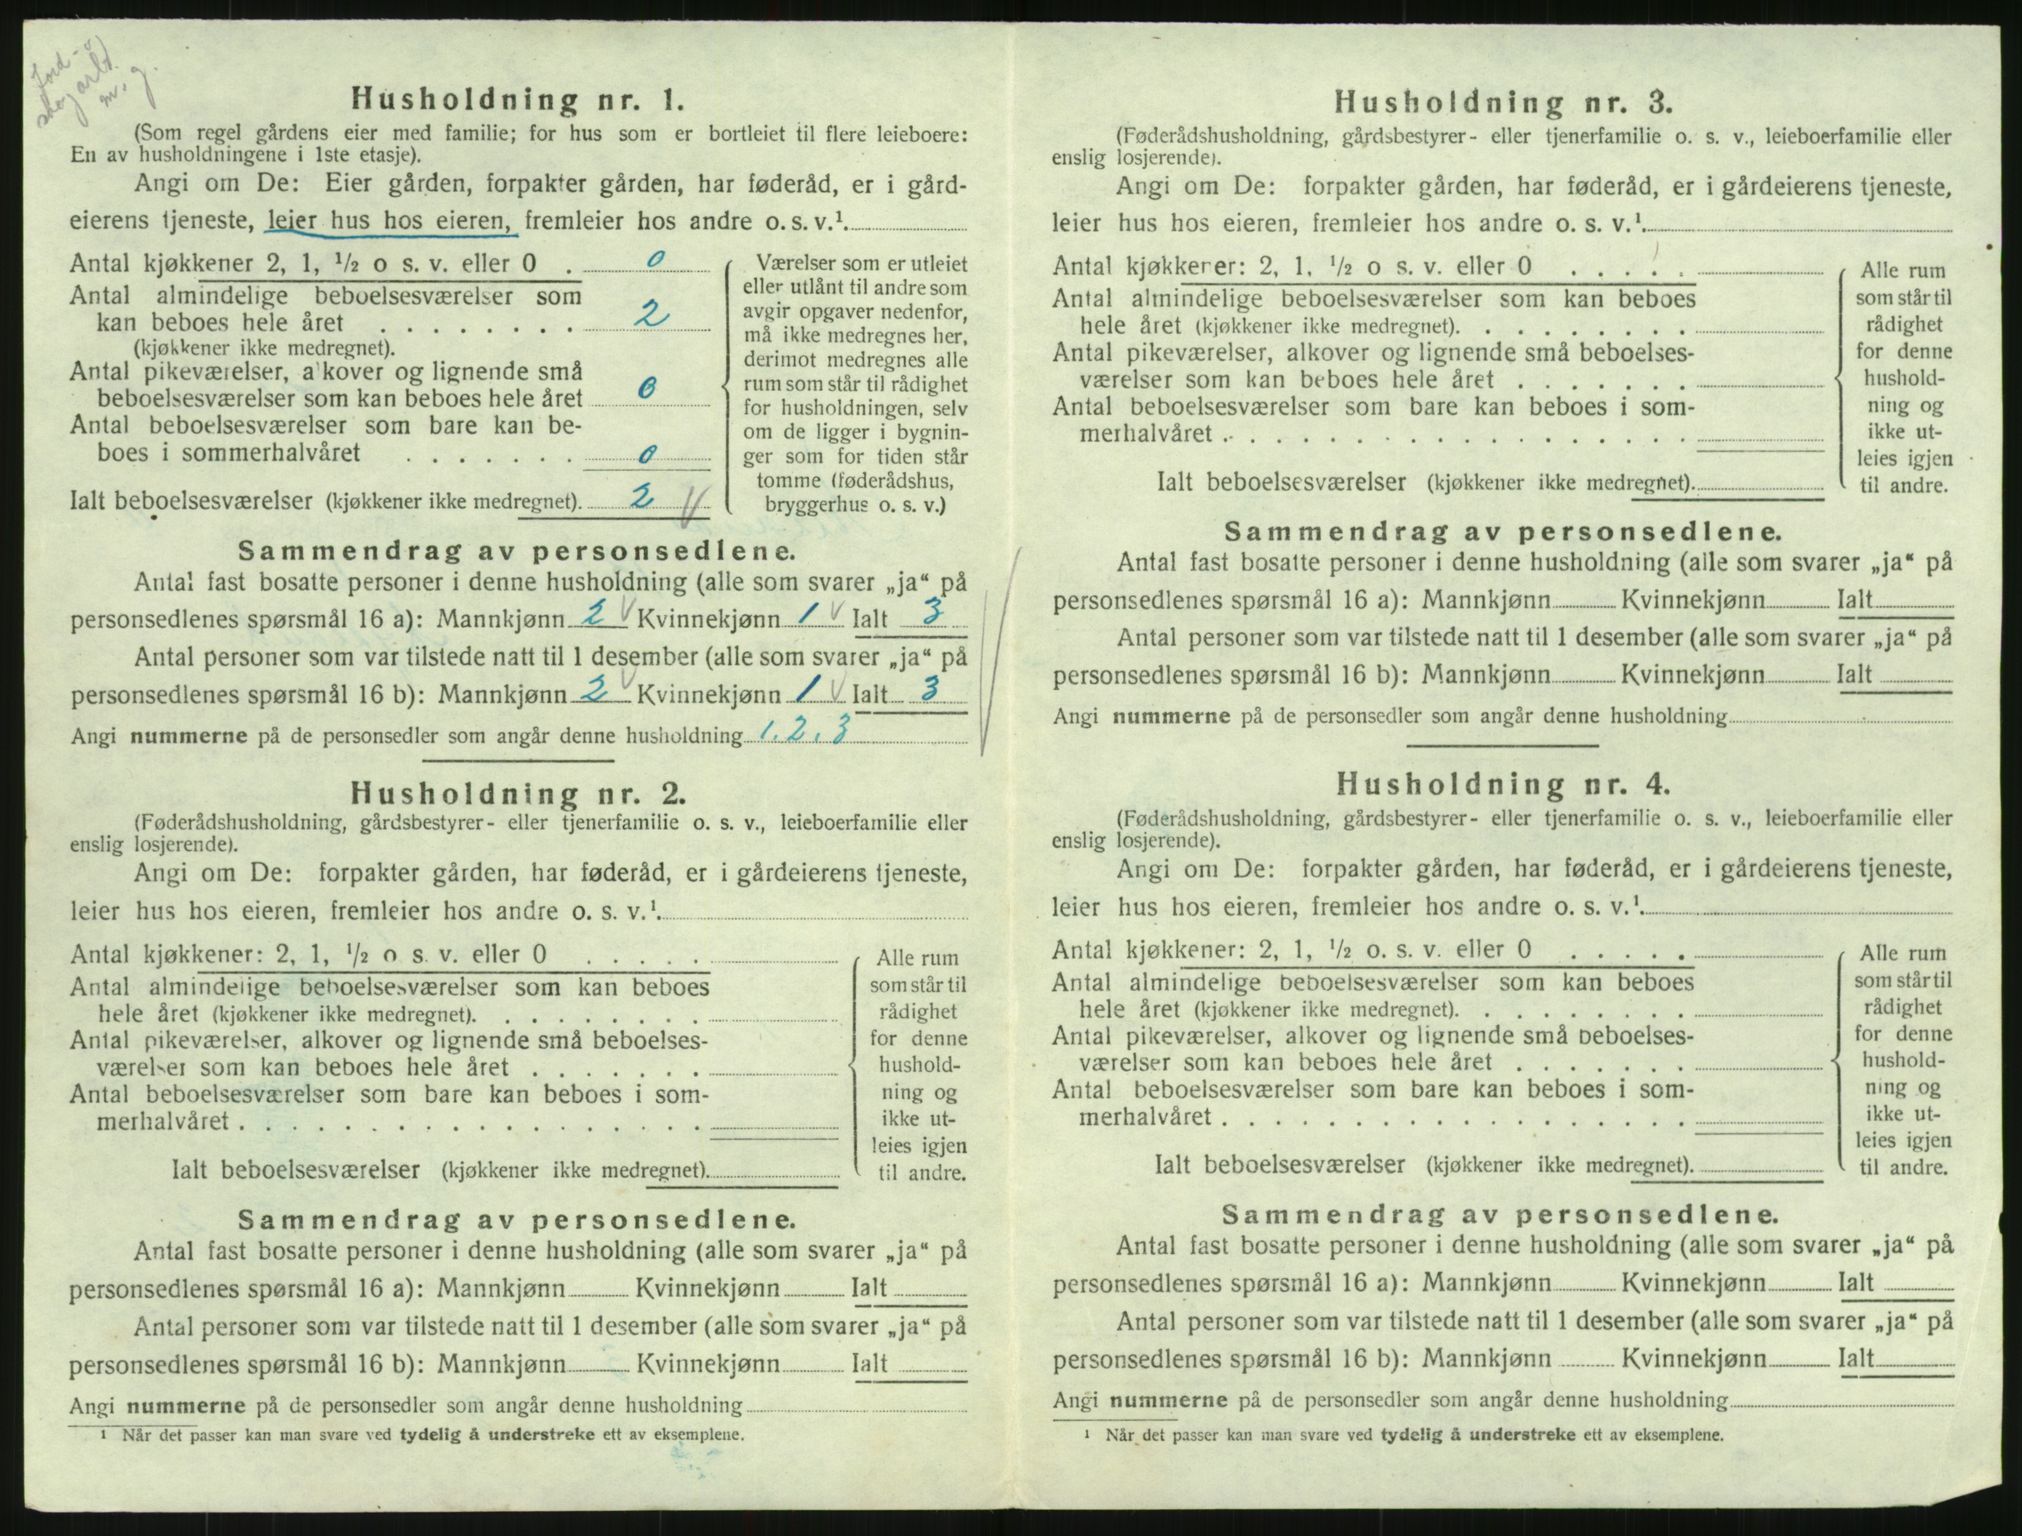 Jord- o
skogarb.
m. g.
Husholdning nr. 1.
(Som regel gårdens eier med familie; for hus som er bortleiet til flere leieboere:
En av husholdningene i 1ste etasje).
Angi om De: Eier gården, forpakter gården, har føderåd, er i gård-
eierens tjeneste, leier hus hos eieren, fremleier hos andre o. s. v.¹
Antal kjøkkener 2, 1, ½ o s. v. eller 0 . 0
Antal almindelige beboelsesværelser som
kan beboes hele året . . . . . . . . 2
(kjøkkener ikke medregnet).
Antal pikeværelser, alkover og lignende små
beboelsesværelser som kan beboes hele året 0
Antal beboelsesværelser som bare kan be-
boes i sommerhalvåret . . . . . . . 0
Ialt beboelsesværelser (kjøkkener ikke medregnet). 2 √
Værelser som er utleiet
eller utlånt til andre som
avgir opgaver nedenfor,
må ikke medregnes her,
derimot medregnes alle
rum som står til rådighet
for husholdningen, selv
om de ligger i bygnin-
ger som for tiden står
tomme (føderådshus,
bryggerhus o. s. v.)
Sammendrag av personsedlene.
Antal fast bosatte personer i denne husholdning (alle som svarer „ja“ på
personsedlenes spørsmål 16 a): Mannkjønn 2 √ Kvinnekjønn 1 √ Ialt 3
Antal personer som var tilstede natt til 1 desember (alle som svarer „ja“ på
personsedlenes spørsmål 16 b): Mannkjønn 2 √ Kvinnekjønn 1 √ Ialt 3
Angi nummerne på de personsedler som angår denne husholdning 1. 2. 3
Husholdning nr. 2.
(Føderådshusholdning, gårdsbestyrer- eller tjenerfamilie o. s. v., leieboerfamilie eller
enslig losjerende).
Angi om De: forpakter gården, har føderåd, er i gårdeierens tjeneste,
leier hus hos eieren, fremleier hos andre o. s. v.¹.
Antal kjøkkener: 2, 1, ½ o s. v. eller 0 . . . . .
Antal almindelige beboelsesværelser som kan beboes
hele året (kjøkkener ikke medregnet). . . . . . . . .
Antal pikeværelser, alkover og lignende små beboelses-
værelser som kan beboes hele året . . . . . . .
Antal beboelsesværelser som bare kan beboes i som-
merhalvåret . . . . . . . . . . . . . . . . . .
Ialt beboelsesværelser (kjøkkener ikke medregnet).
Alle rum
som står til
rådighet
for denne
hushold-
ning og
ikke ut-
leies igjen
til andre.
Sammendrag av personsedlene.
Antal fast bosatte personer i denne husholdning (alle som svarer „ja“ på
personsedlenes spørsmål 16 a): Mannkjønn Kvinnekjønn Ialt
Antal personer som var tilstede natt til 1 desember (alle som svarer „ja“ på
personsedlenes spørsmål 16 b): Mannkjønn Kvinnekjønn Ialt
Angi nummerne på de personsedler som angår denne husholdning
¹ Når det passer kan man svare ved tydelig å understreke ett av eksemplene.
Husholdning nr. 3.
(Føderådshusholdning, gårdsbestyrer- eller tjenerfamilie o. s. v., leieboerfamilie eller
enslig losjerende).
Angi om De: forpakter gården, har føderåd, er i gårdeierens tjeneste,
leier hus hos eieren, fremleier hos andre o. s. v.¹.
Antal kjøkkener: 2, 1, ½ o s. v. eller 0 . . . . .
Antal almindelige beboelsesværelser som kan beboes
hele året (kjøkkener ikke medregnet). . . . . . . . .
Antal pikeværelser, alkover og lignende små beboelses-
værelser som kan beboes hele året . . . . . . .
Antal beboelsesværelser som bare kan beboes i som-
merhalvåret . . . . . . . . . . . . . . . . . .
Ialt beboelsesværelser (kjøkkener ikke medregnet).
Alle rum
som står til
rådighet
for denne
hushold-
ning og
ikke ut-
leies igjen
til andre.
Sammendrag av personsedlene.
Antal fast bosatte personer i denne husholdning (alle som svarer „ja“ på
personsedlenes spørsmål 16 a): Mannkjønn Kvinnekjønn Ialt
Antal personer som var tilstede natt til 1 desember (alle som svarer „ja“ på
personsedlenes spørsmål 16 b): Mannkjønn Kvinnekjønn Ialt
Angi nummerne på de personsedler som angår denne husholdning
Husholdning nr. 4.
(Føderådshusholdning, gårdsbestyrer- eller tjenerfamilie o. s. v., leieboerfamilie eller
enslig losjerende).
Angi om De: forpakter gården, har føderåd, er i gårdeierens tjeneste,
leier hus hos eieren, fremleier hos andre o. s. v.¹.
Antal kjøkkener: 2, 1, ½ o. s. v. eller 0 . . . . .
Antal almindelige beboelsesværelser som kan beboes
hele året (kjøkkener ikke medregnet). . . . . . . . .
Antal pikeværelser, alkover og lignende små beboelses-
værelser som kan beboes hele året . . . . . . .
Antal beboelsesværelser som bare kan beboes i som-
merhalvåret . . . . . . . . . . . . . . . . . .
Ialt beboelsesværelser (kjøkkener ikke medregnet).
Alle rum
som står til
rådighet
for denne
hushold-
ning og
ikke ut-
leies igjen
til andre.
Sammendrag av personsedlene.
Antal fast bosatte personer i denne husholdning (alle som svarer „ja“ på
personsedlenes spørsmål 16 a): Mannkjønn Kvinnekjønn Ialt
Antal personer som var tilstede natt til 1 desember (alle som svarer „ja“ på
personsedlenes spørsmål 16 b): Mannkjønn Kvinnekjønn Ialt
Angi nummerne på de personsedler som angår denne husholdning
¹ Når det passer kan man svare ved tydelig å understreke ett av eksemplene.